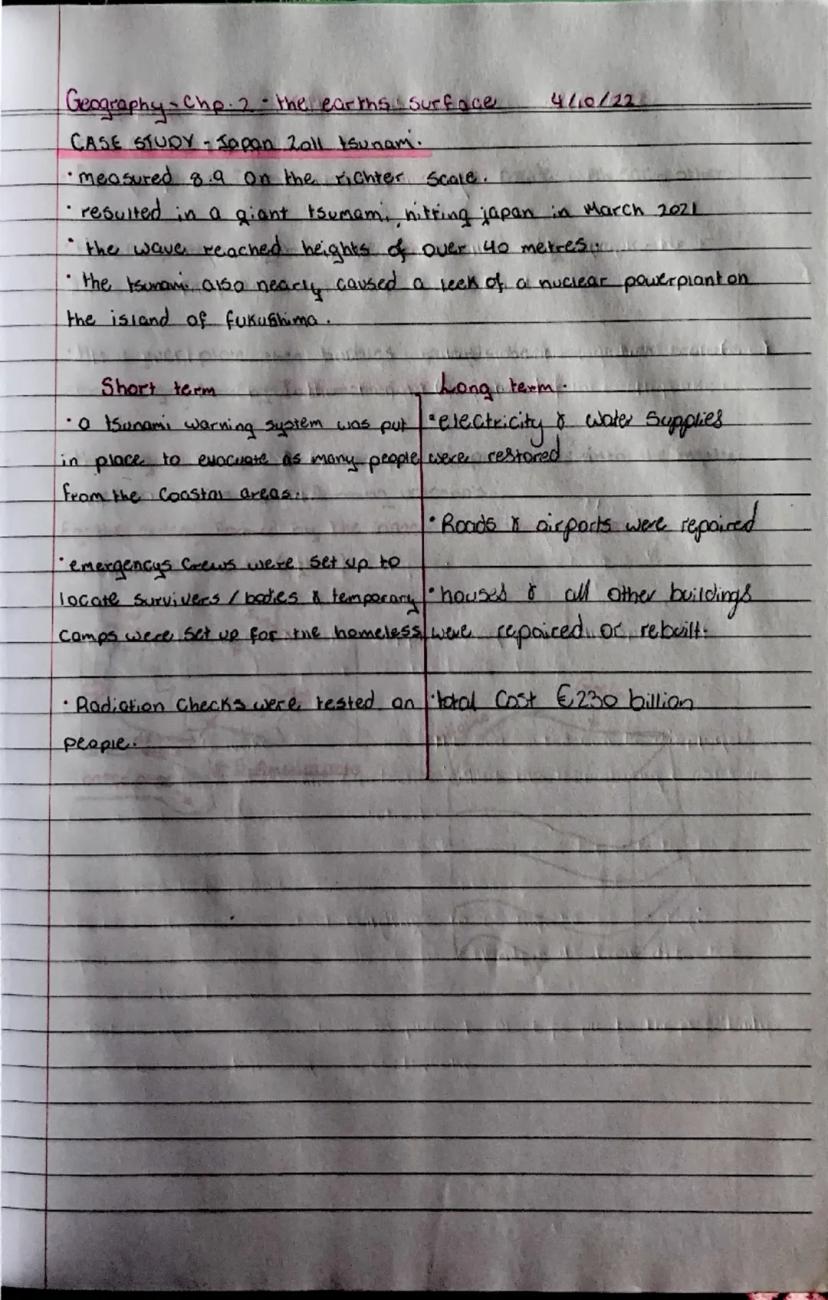 Geography - Chp. 2 - the earths surface 4/10/22
CASE STUDY - Japan 2011 tsunami.
• measured 8.9 on the richter scale.
• resulted in a giant tsumami, hitting japan in March 2021
• the wave reached heights of over 40 metres.
• the tsunami also nearly caused a leek of a nuclear powerplant on
the island of fukushima.
Short term
• a tsunami warning system was put
in place to evacuate as many people
from the coastal areas.
• emergencys crews were set up to
locate survivers / boties & temporary
camps were set up for the homeless
• Radiation checks were tested on
people.
Long term.
• electricity & water supplies
were restored
• Roads & airports were repaired
• houses & all other buildings
were repaired or rebuilt.
• total cost €230 billion